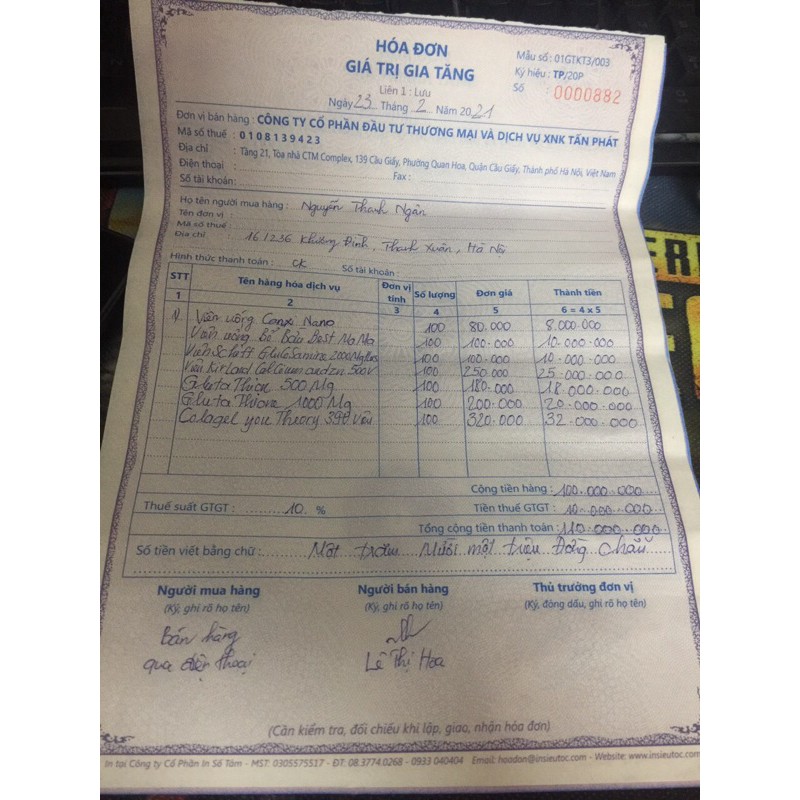 HÓA ĐƠN
GIÁ TRỊ GIA TĂNG
Liên 1 : Lưu
Ngày 23 Tháng 2 Năm 2021
Mẫu số : 01GTKT3/003
Ký hiệu : TP/20P
Số : 0000882
Đơn vị bán hàng : CÔNG TY CỔ PHẦN ĐẦU TƯ THƯƠNG MẠI VÀ DỊCH VỤ XNK TẤN PHÁT
Mã số thuế : 0108139423
Địa chỉ : Tầng 21, Tòa nhà CTM Complex, 139 Cầu Giấy, Phường Quan Hoa, Quận Cầu Giấy, Thành phố Hà Nội, Việt Nam
Điện thoại : Fax :
Số tài khoản:
Họ tên người mua hàng : Nguyễn Thanh Ngân
Tên đơn vị :
Mã số thuế :
Địa chỉ : 16/236 Khương Đình, Thanh Xuân, Hà Nội
Hình thức thanh toán : CK Số tài khoản :
STT Tên hàng hóa dịch vụ Đơn vị tính Số lượng Đơn giá Thành tiền
1 2 3 4 5 6 = 4 x 5
Viên uống Canxi Nano 100 80.000 8.000.000
Viên uống Bổ Bầu Best MaMa 100 100.000 10.000.000
Viên Schiff GlucoSamine 2000Mg 100 100.000 10.000.000
Viên Kirland Calcium 500V 100 250.000 25.000.000
Gluta Thion 500 Mg 100 180.000 18.000.000
Gluta Thione 1000 Mg 100 200.000 20.000.000
Colagel you Theory 390 Viên 100 320.000 32.000.000
Cộng tiền hàng : 100.000.000
Thuế suất GTGT : 10 % Tiền thuế GTGT : 10.000.000
Tổng cộng tiền thanh toán : 110.000.000
Số tiền viết bằng chữ : Một trăm Mười một triệu Đồng chẵn
Người mua hàng Người bán hàng Thủ trưởng đơn vị
(Ký, ghi rõ họ tên) (Ký, ghi rõ họ tên) (Ký, đóng dấu, ghi rõ họ tên)
Bán hàng
qua điện thoại Lê Thị Hoa
(Cần kiểm tra, đối chiếu khi lập, giao, nhận hóa đơn)
In tại Công ty Cổ Phần In Số Tám - MST: 0305575517 - ĐT: 08.3774.0268 - 0933 040404 Email: hoadon@insieutoc.com - Website: www.insieutoc.com